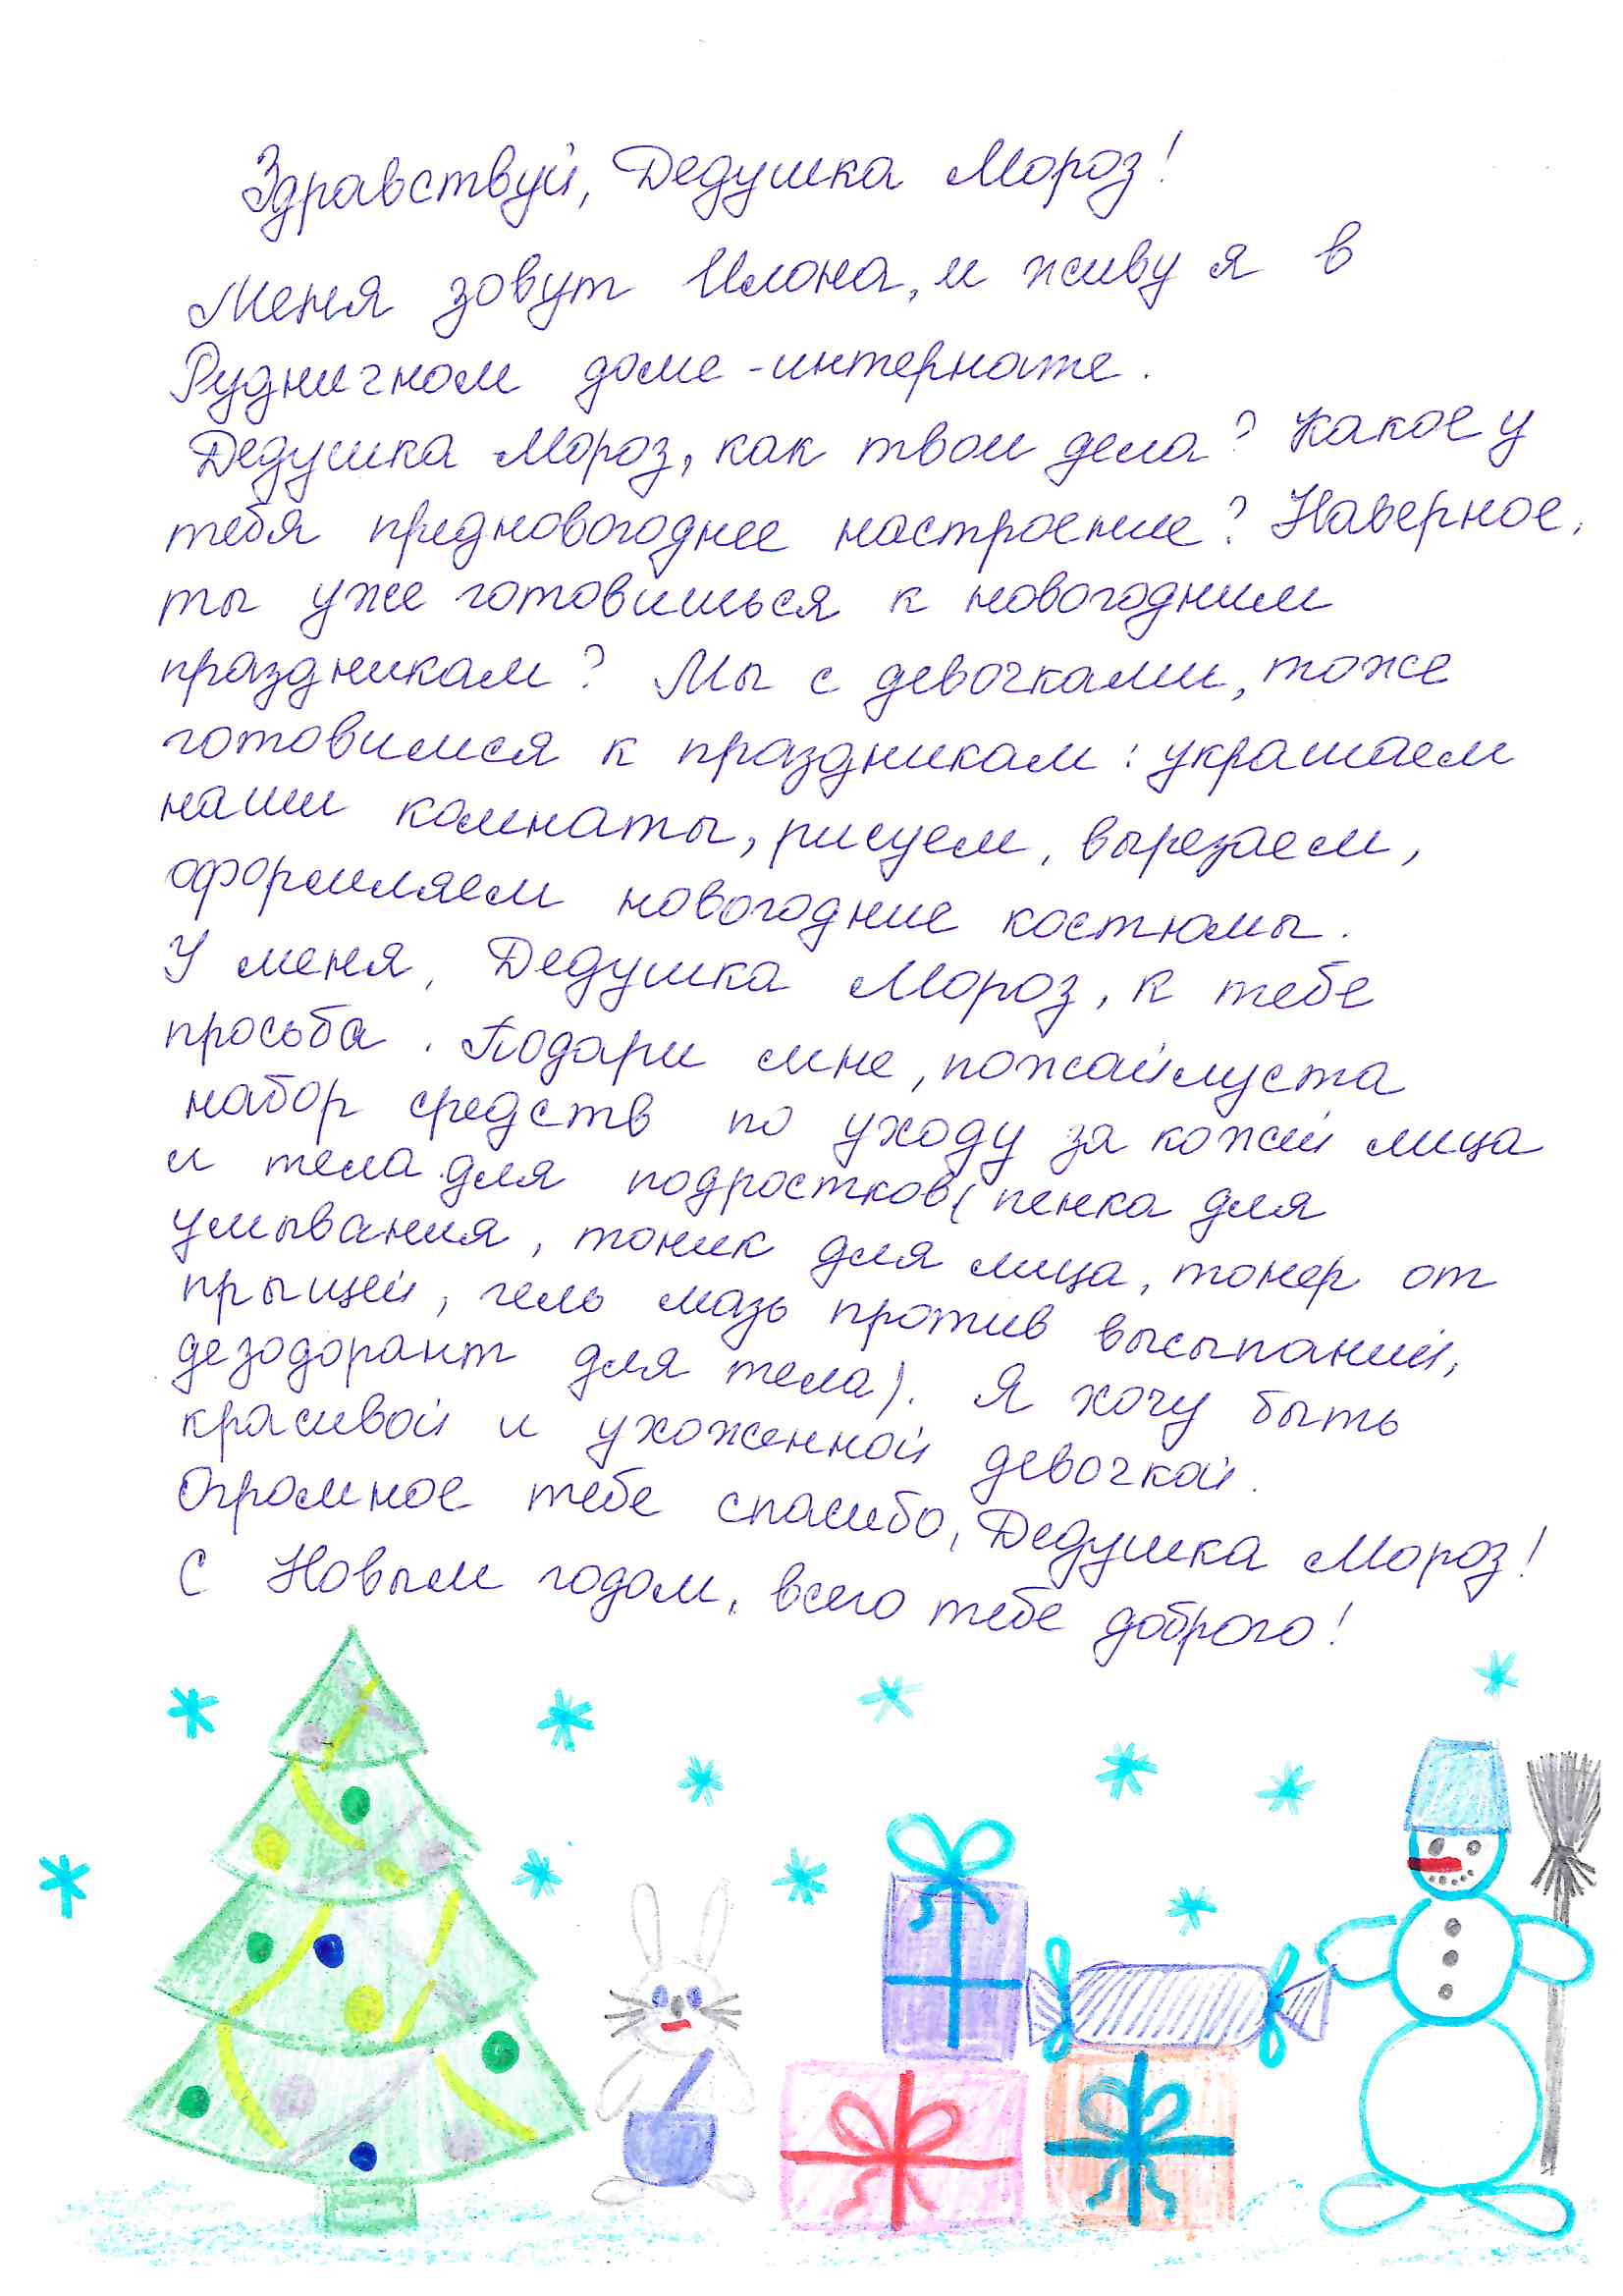 Здравствуй, Дедушка Мороз!
Меня зовут Илона, и живу я в
Рудничном доме-интернате.
Дедушка Мороз, как твои дела? Какое у
тебя предновогоднее настроение? Наверное,
ты уже готовишься к новогодним
праздникам? Мы с девочками, тоже
готовимся к праздникам: украшаем
наши комнаты, рисуем, вырезаем,
оформляем новогодние костюмы.
У меня, Дедушка Мороз, к тебе
просьба. Подари мне, пожайлуста
набор средств по уходу за кожей лица
и тела для подростков (пенка для
умывания, тоник для лица, тонер от
прыщей, гель мазь против высыпаний,
дезодорант для тела). Я хочу быть
красивой и ухоженной девочкой.
Огромное тебе спасибо, Дедушка Мороз!
С Новым годом, всего тебе доброго!